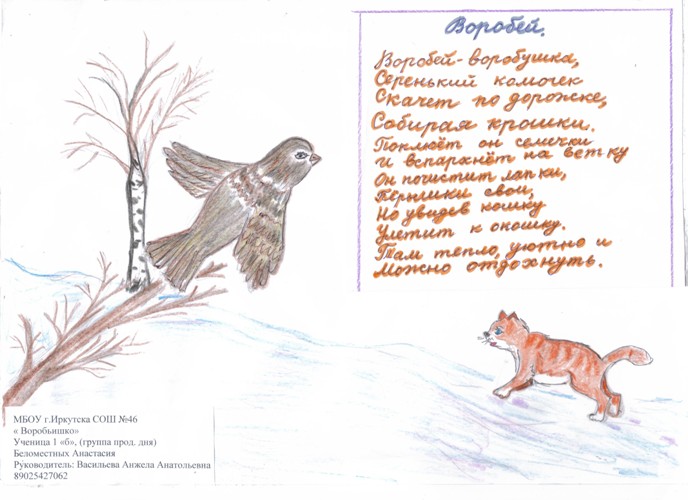 Воробей.
Воробей-воробушка,
Серенький комочек
Скачет по дорожке,
Собирая крошки.
Поклюёт он семечки
и вспархнёт на ветку
Он почистит лапки,
Пёрышки свои,
Но увидев кошку
Улетит к окошку.
Там тепло, уютно и
Можно отдохнуть.
МБОУ г.Иркутска СОШ №46
« Воробьишко»
Ученица 1 «б», (группа прод. дня)
Беломестных Анастасия
Руководитель: Васильева Анжела Анатольевна
89025427062